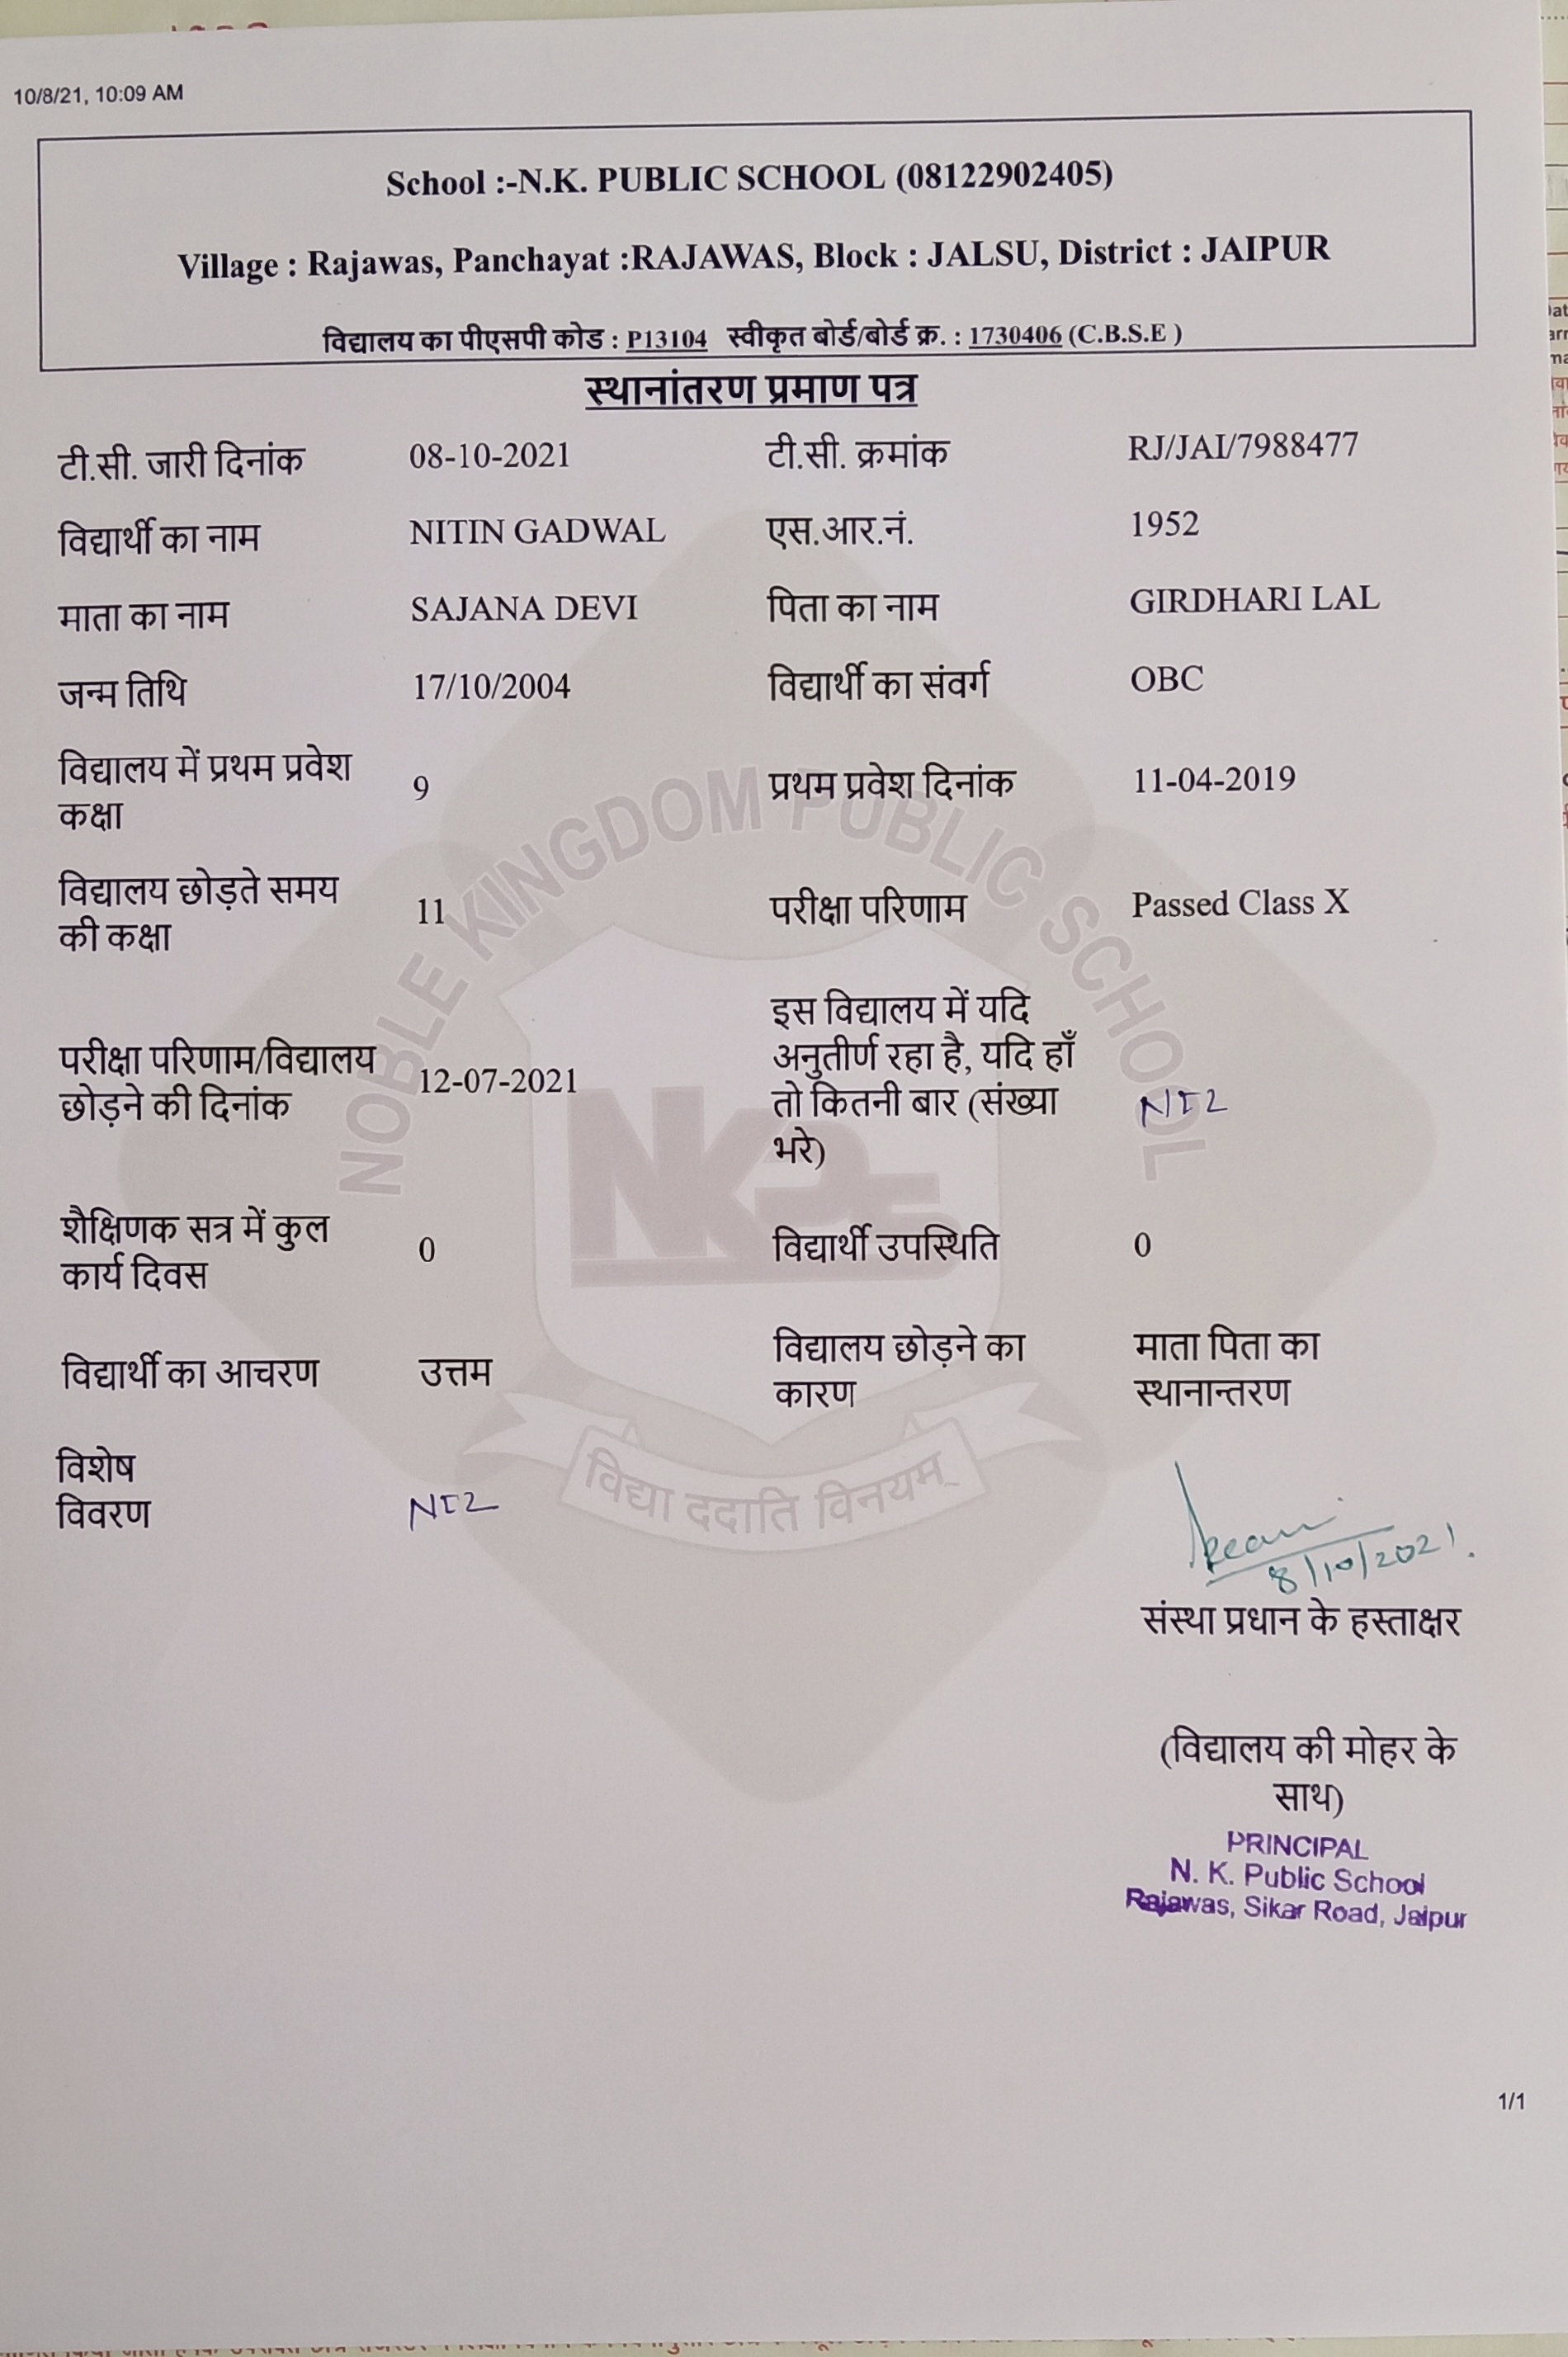 10/8/21, 10:09 AM
School :-N.K. PUBLIC SCHOOL (08122902405)
Village : Rajawas, Panchayat :RAJAWAS, Block : JALSU, District : JAIPUR
विद्यालय का पीएसपी कोड : P13104 स्वीकृत बोर्ड/बोर्ड क्र. : 1730406 (C.B.S.E )
स्थानांतरण प्रमाण पत्र
टी.सी. जारी दिनांक 08-10-2021 टी.सी. क्रमांक RJ/JAI/7988477
विद्यार्थी का नाम NITIN GADWAL एस.आर.नं. 1952
माता का नाम SAJANA DEVI पिता का नाम GIRDHARI LAL
जन्म तिथि 17/10/2004 विद्यार्थी का संवर्ग OBC
विद्यालय में प्रथम प्रवेश
कक्षा
9
प्रथम प्रवेश दिनांक 11-04-2019
विद्यालय छोड़ते समय
की कक्षा
11
परीक्षा परिणाम Passed Class X
परीक्षा परिणाम/विद्यालय
छोड़ने की दिनांक
12-07-2021
इस विद्यालय में यदि
अनुतीर्ण रहा है, यदि हाँ
तो कितनी बार (संख्या
भरे)
NIL
शैक्षिणक सत्र में कुल
कार्य दिवस
0
विद्यार्थी उपस्थिति 0
विद्यार्थी का आचरण उत्तम
विद्यालय छोड़ने का
कारण
माता पिता का
स्थानान्तरण
विशेष
विवरण
NIL
8/10/2021.
संस्था प्रधान के हस्ताक्षर
(विद्यालय की मोहर के
साथ)
PRINCIPAL
N. K. Public School
Rajawas, Sikar Road, Jaipur
1/1
NOBLE KINGDOM PUBLIC SCHOOL
NKPS
विद्या ददाति विनयम्